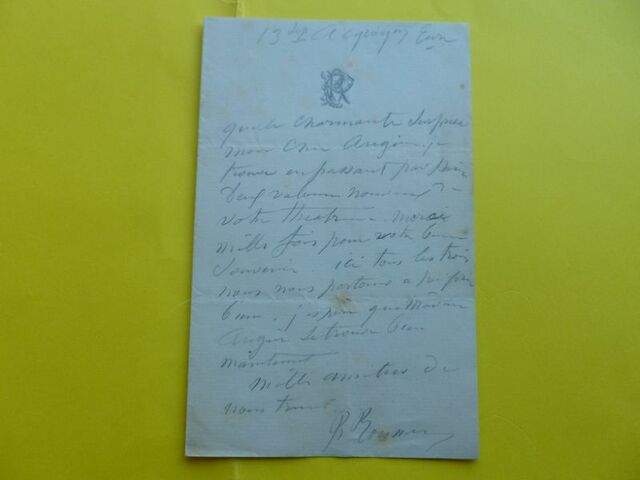 13 7bre Acquigny Eure
quelle charmante surprise
mon cher Augier, je
trouve en passant par Paris
deux volumes nouveaux de
votre théatre. merci
mille fois pour votre bon
souvenir. ici tous les trois
nous nous portons a
bien. j'espère que Madame
Augier se trouve bien
maintenant
Mille amities de
nous tous
Ph Rousseau